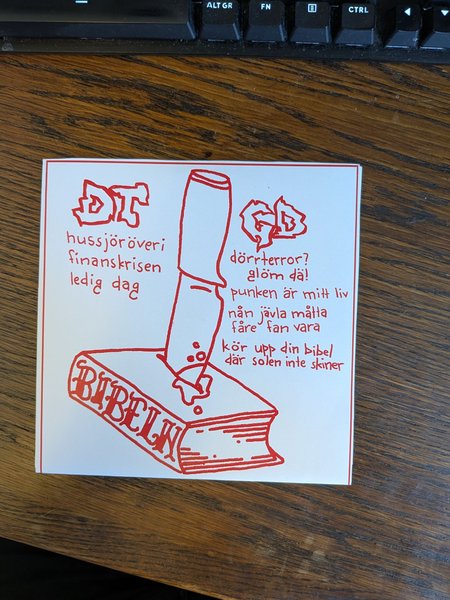 ALT GR
FN
CTRL
DT
hussjöröveri
finanskrisen
ledig dag
GD
dörrterror?
glöm dä!
punken är mitt liv
nån jävla måtta
fåre fan vara
kör upp din bibel
där solen inte skiner
BIBELN